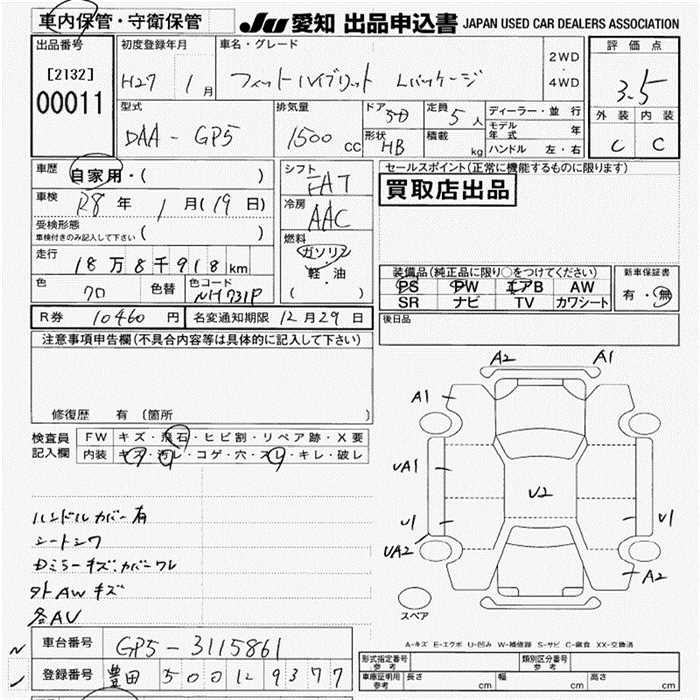 車内保管・守衛保管 JU 愛知 出品申込書 JAPAN USED CAR DEALERS ASSOCIATION
出品番号 初度登録年月 車名・グレード 評価点
[2132] H27 1月 フィットハイブリット Lパッケージ 2WD・4WD 3.5
00011 型式 排気量 ドア 定員 ディーラー・並行 外装 内装
DAA-GP5 1500cc 5D 5人 モデル年式 年
形状 HB 積載 kg ハンドル 左・右 C C
車歴 自家用・( ) シフト FAT セールスポイント(正常に機能するものに限ります)
車検 R8年 1月(19日) 冷房 AAC 買取店出品
受検形態
車検付きのみ記入して下さい ( )
走行 18万8千918km 燃料 ガソリン・軽・油 ( )
装備品(純正品に限り○をつけてください) 新車保証書
PS PW エアB AW 有・無
SR ナビ TV カワシート
色 クロ 色替 色コード NH731P
R券 10460円 名変通知期限 12月29日 後日品
注意事項申告欄(不具合内容等は具体的に記入して下さい)
修復歴 有 〔箇所 〕
検査員記入欄 FW キズ・飛石・ヒビ割・リペア跡・X要
内装 キズ・汚レ・コゲ・穴・スレ・キレ・破レ
A2 A1
A1
UA1
U2
U1 U1
UA2
A2
スペア
ハンドルカバー有
シートシワ
Dミラーキズ.カバーワレ
外AWキズ
各AU
A-キズ E-エクボ U-凹み W-補修跡 S-サビ C-腐食 XX-交換済
車台番号 GP5-3115861
登録番号 豊田 500 12 9377
形式指定番号 参考 類別区分番号 参考
車庫証明用 参考 長さ cm 幅 cm 高さ cm